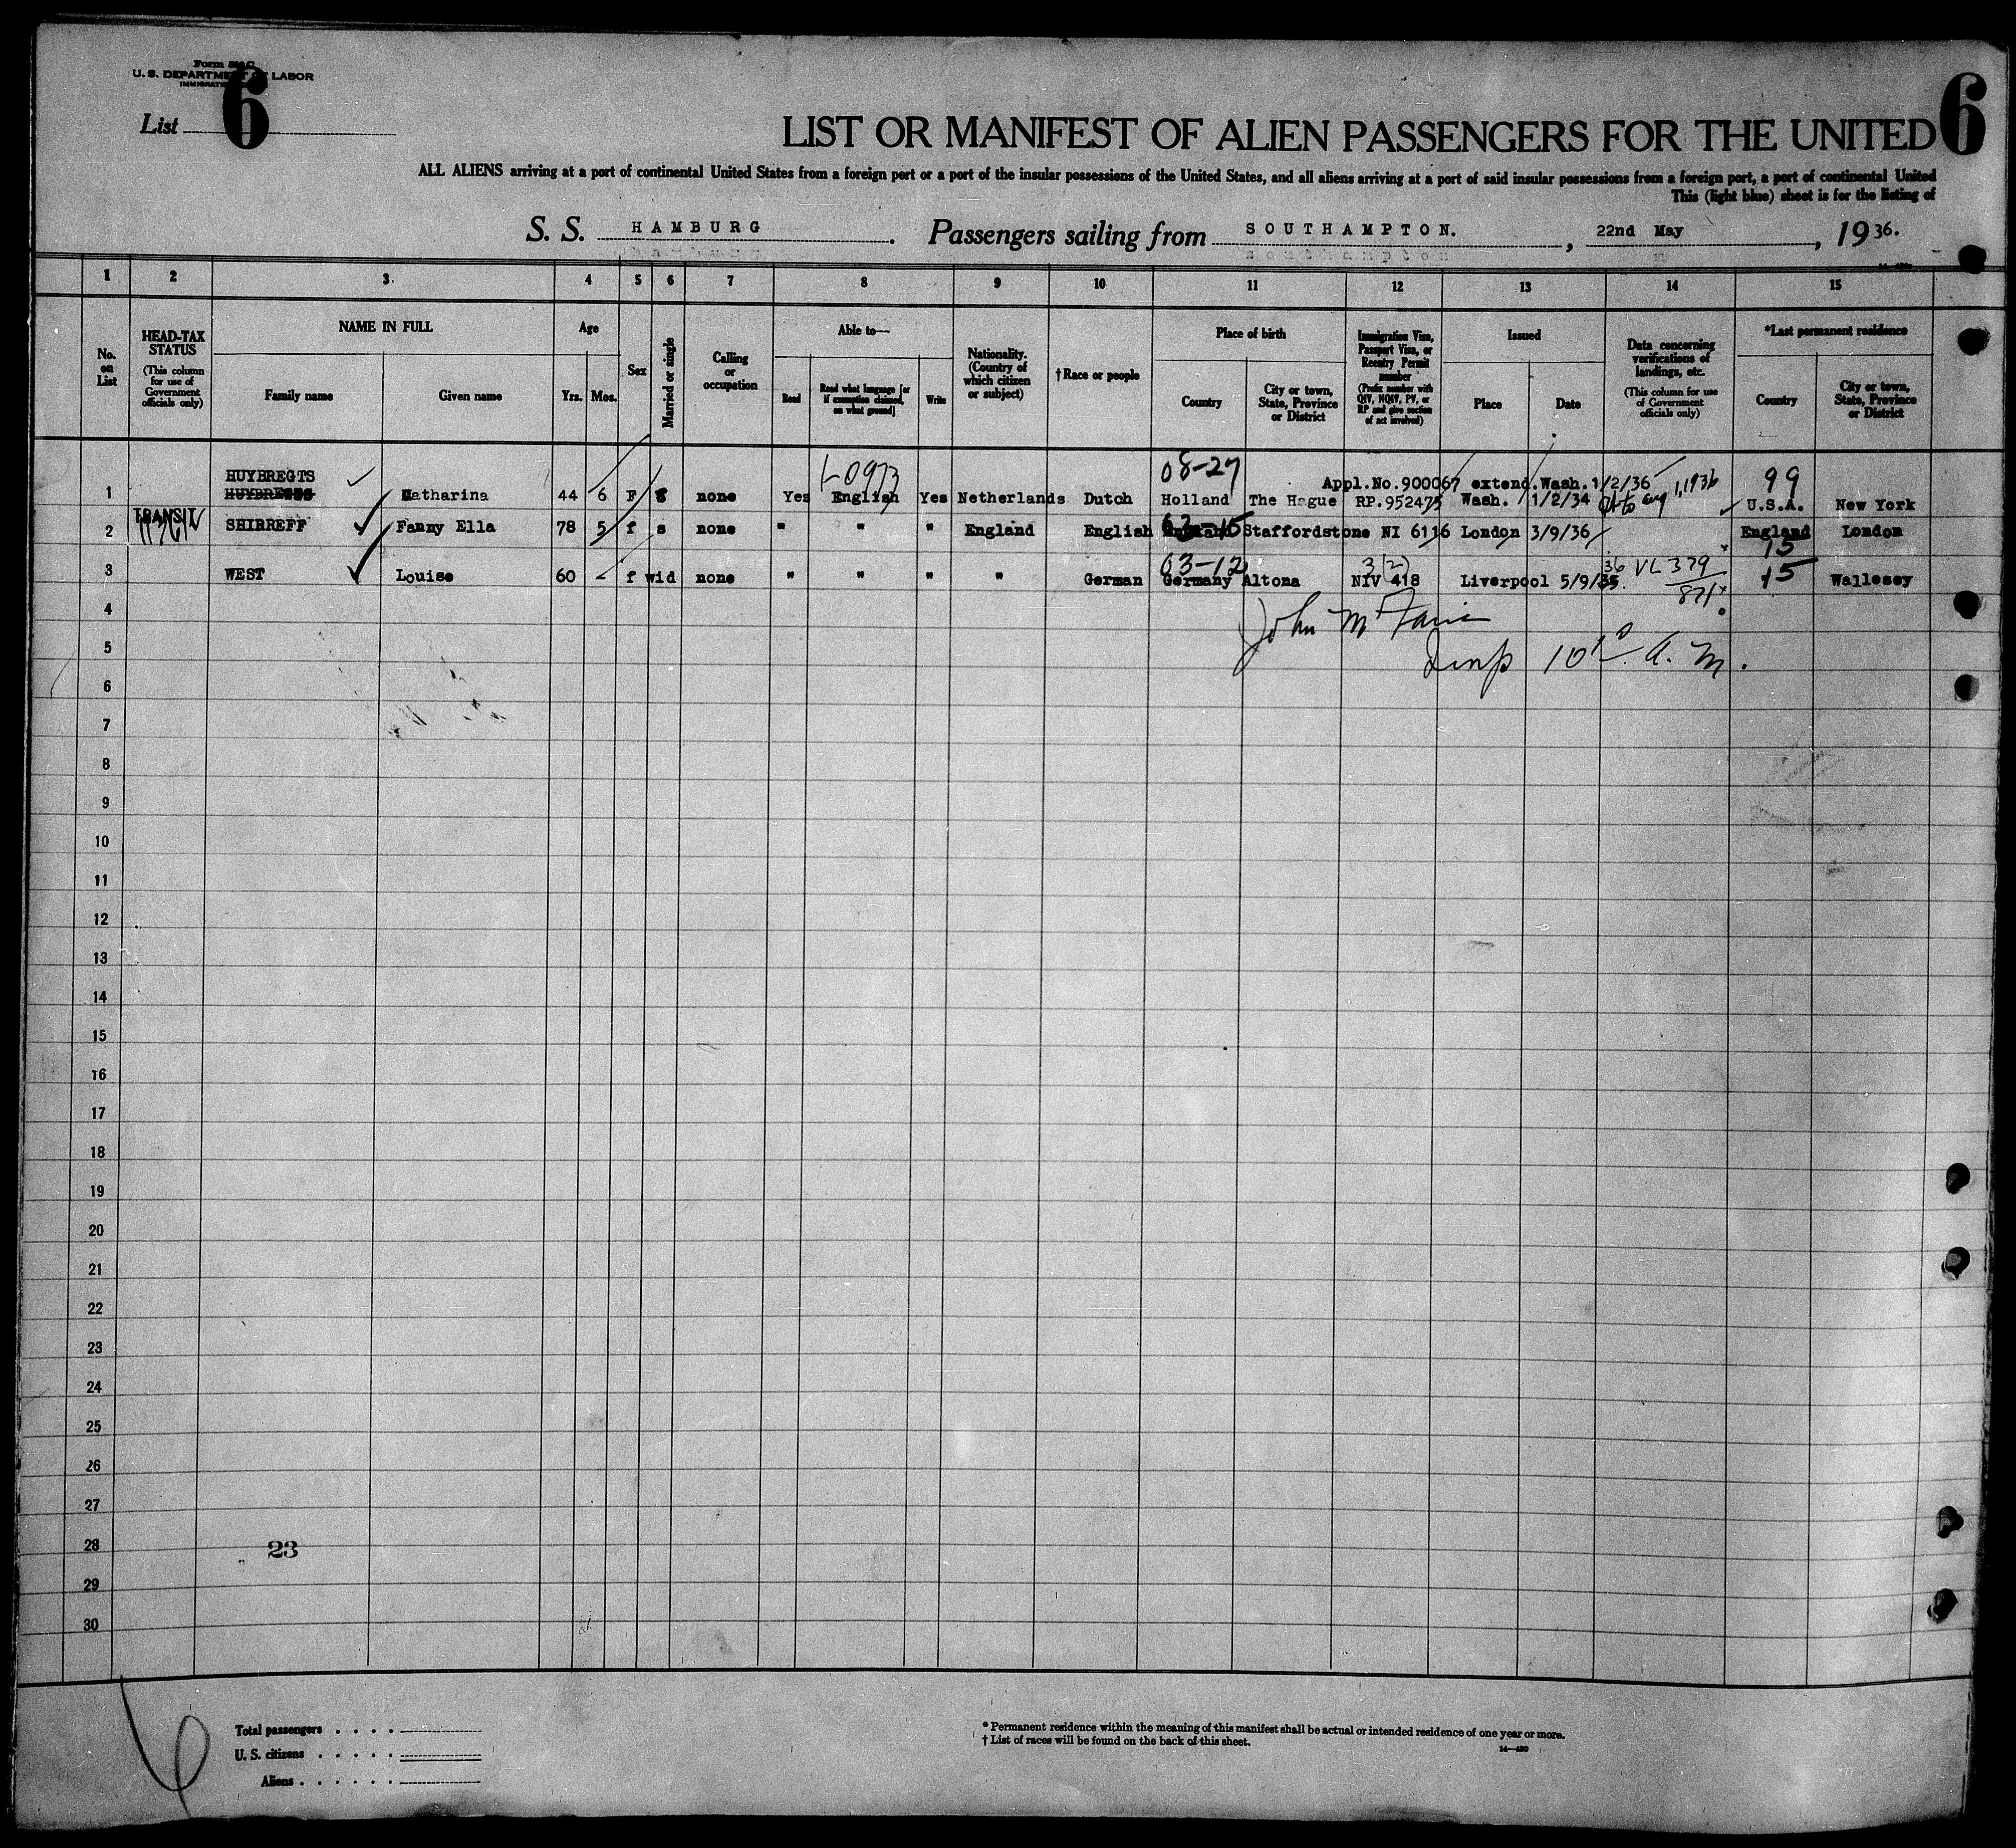 Form 500 C
U. S. DEPARTMENT OF LABOR
List 6
6
LIST OR MANIFEST OF ALIEN PASSENGERS FOR THE UNITED
ALL ALIENS arriving at a port of continental United States from a foreign port or a port of the insular possessions of the United States, and all aliens arriving at a port of said insular possessions from a foreign port, a port of continental United
This (light blue) sheet is for the listing of
S. S. HAMBURG. Passengers sailing from SOUTHAMPTON. , 22nd May , 19 36.
1 2 3 4 5 6 7 8 9 10 11 12 13 14 15
No. on List
HEAD-TAX STATUS (This column for use of Government officials only)
NAME IN FULL
Family name
Given name
Age
Yrs. Mos.
Sex
Married or single
Calling or occupation
Able to—
Read
Read what language [or if exemption claimed, on what ground]
Write
Nationality. (Country of which citizen or subject)
†Race or people
Place of birth
Country
City or town, State, Province or District
Immigration Visa, Passport Visa, or Reentry Permit number (Prefix number with QIV, NQIV, PV, or RP and give section of act involved)
Issued
Place
Date
Data concerning verifications of landings, etc. (This column for use of Government officials only)
*Last permanent residence
Country
City or town, State, Province or District
HUYBREGTS 08-27 Appl.No.900067 extend.Wash.1/2/36 99
1 Catharina 44 6 F none Yes English Yes Netherlands Dutch Holland The Hague RP.952475 Wash. 1/2/34 U.S.A. New York
TRANSIT
2 SHIRREFF Fanny Ella 78 5 f s none " " " England English 63-15 Staffordstone NI 6116 London 3/9/36 England London
15
63-12 3(2) 36 VL 379
3 WEST Louise 60 - f wid none " " " " German Germany Altona NIV 418 Liverpool 5/9/35. 15 Wallesey
871
4
5
6
7
8
9
10
11
12
13
14
15
16
17
18
19
20
21
22
23
24
25
26
27
28 23
29
30
Total passengers . . . .
U. S. citizens . . . . .
Aliens . . . . . .
* Permanent residence within the meaning of this manifest shall be actual or intended residence of one year or more.
† List of races will be found on the back of this sheet.
14—430
6